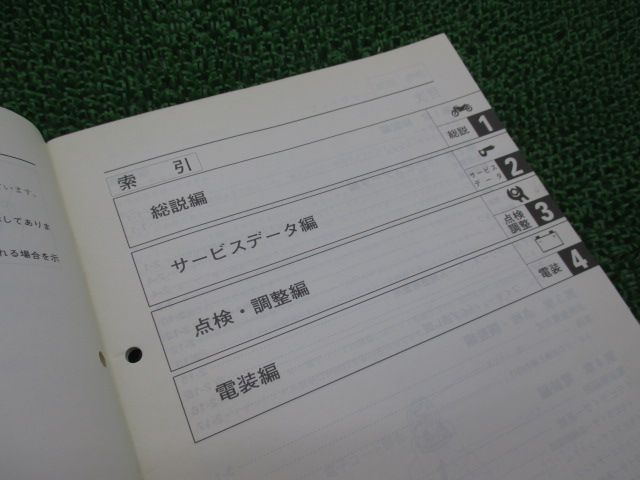 います。
してありま
れる場合を示
索 引
総説編
総説 1
サービスデータ編
サービス
データ 2
点検・調整編
点検
調整 3
電装編
電装 4